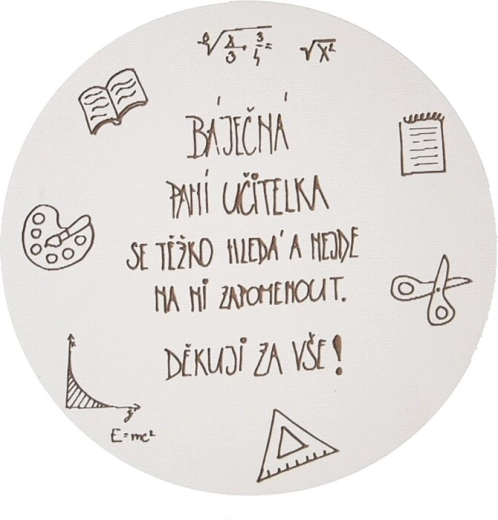 ∜x/3 · 3/4 = √x²
BÁJEČNÁ
PANÍ UČITELKA
SE TĚŽKO HLEDÁ A NEJDE
NA NI ZAPOMENOUT.
DĚKUJI ZA VŠE!
E=mc²